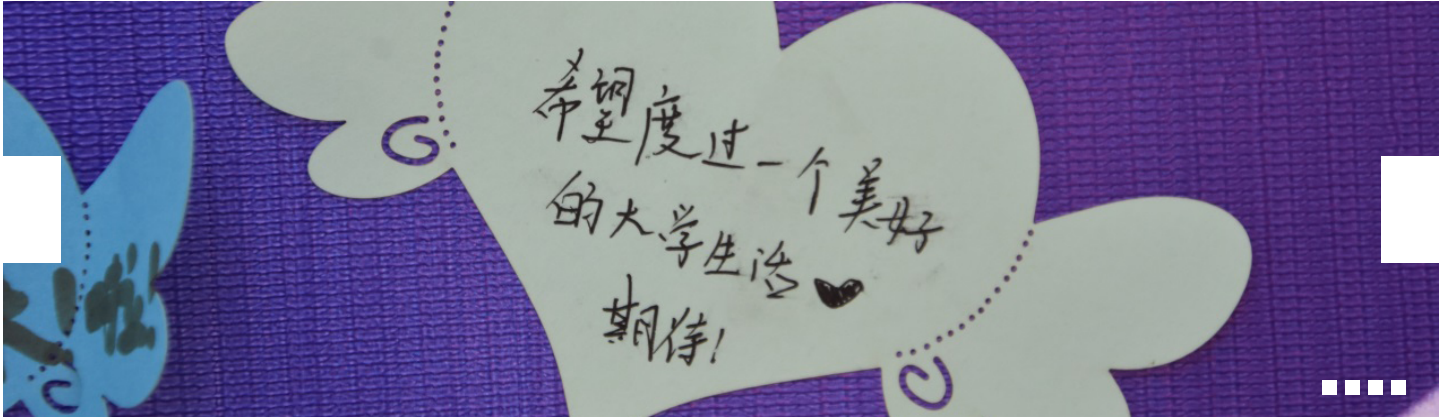 希望度过一个美好
的大学生活♥
期待!
啦